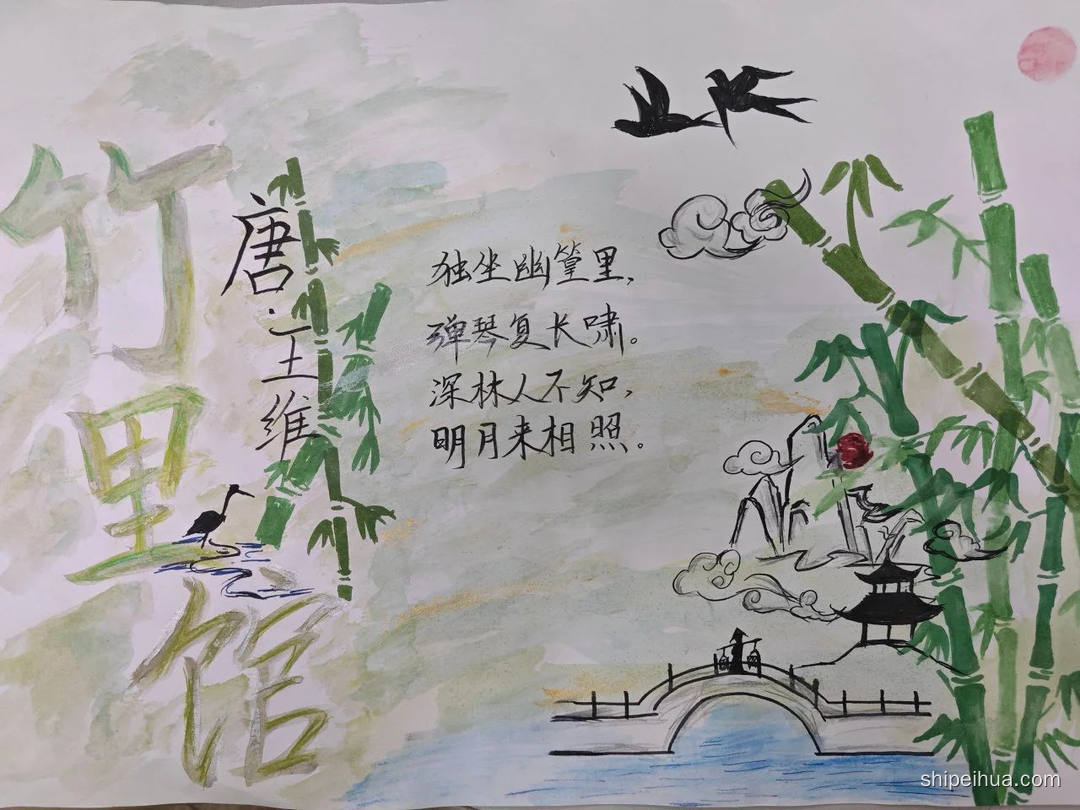 竹里馆
唐·王维
独坐幽篁里，
弹琴复长啸。
深林人不知，
明月来相照。
shipeihua.com